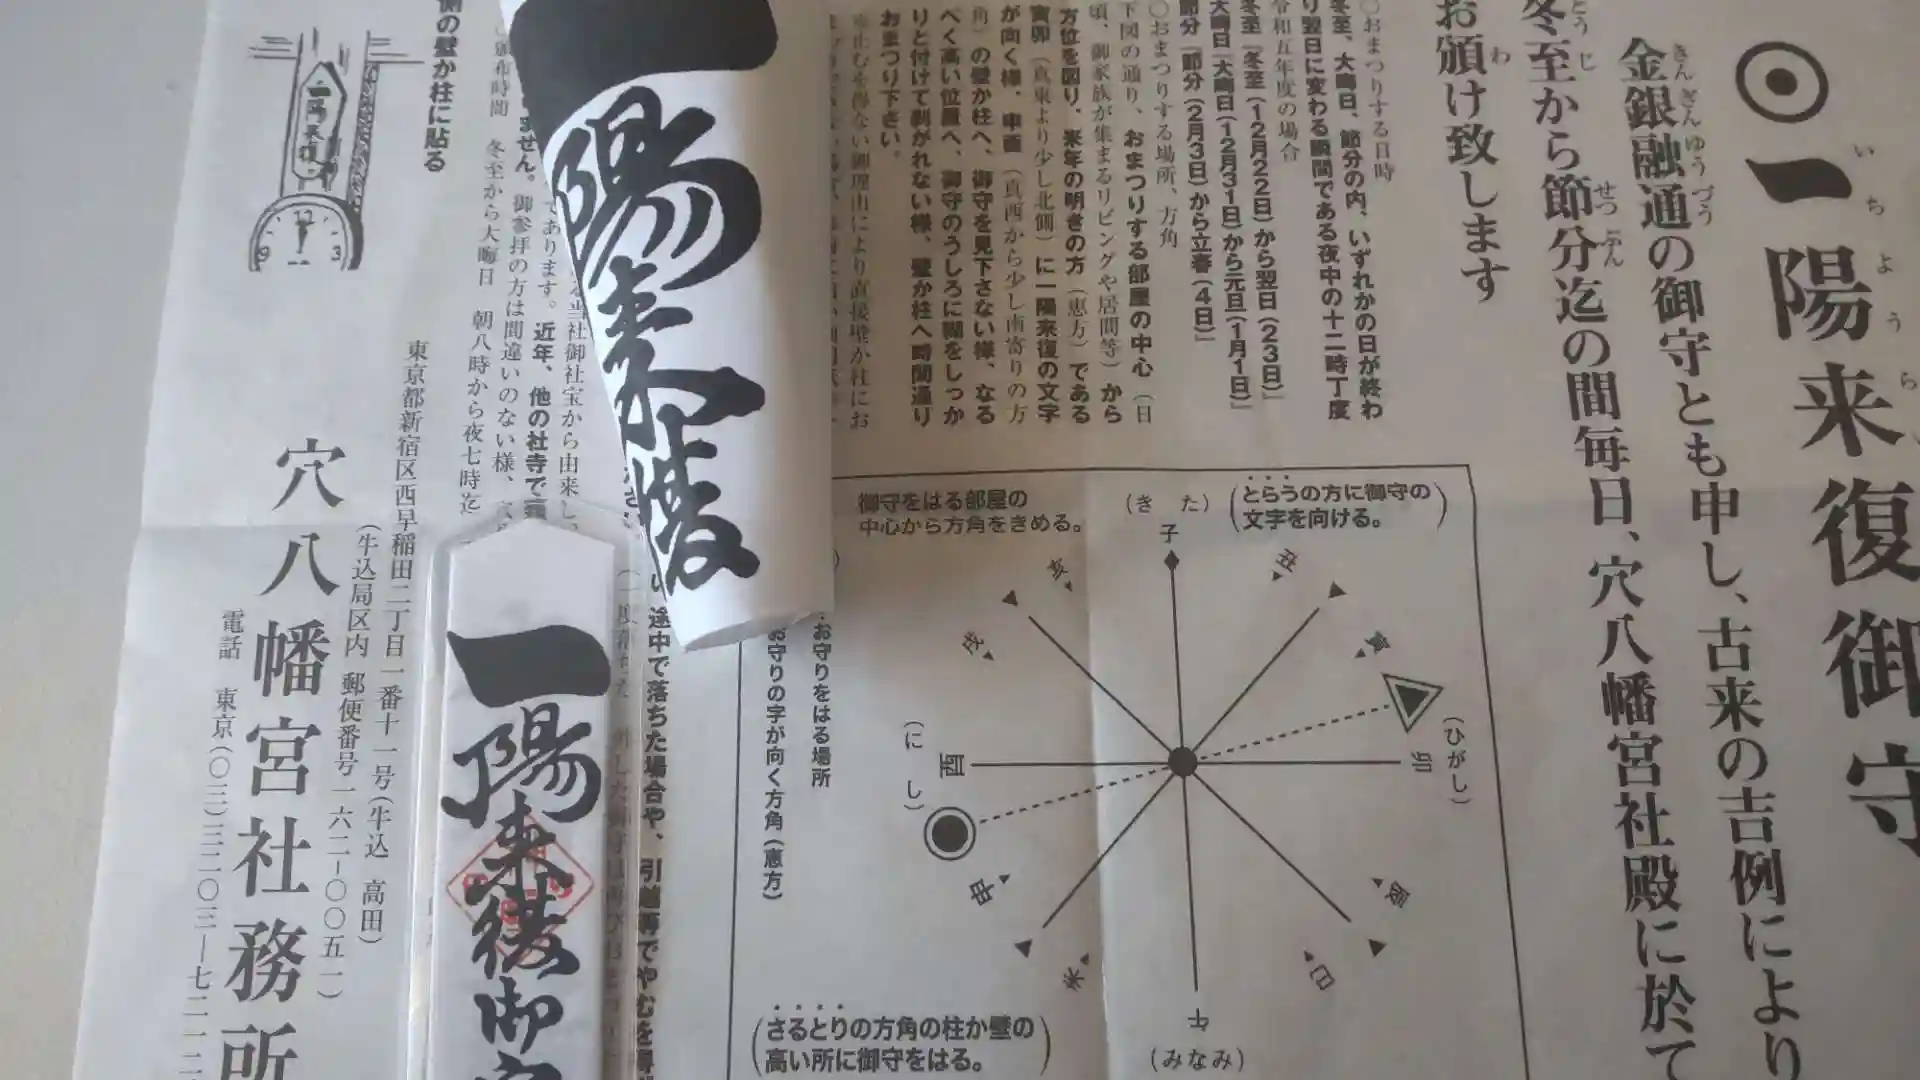 一陽来復御守
金銀融通の御守とも申し、古来の吉例により
冬至から節分迄の間毎日、穴八幡宮社殿に於て
お頒け致します
○おまつりする日時
冬至、大晦日、節分の内、いずれかの日が終わ
り翌日に変わる瞬間である夜中の十二時丁度
令和五年度の場合
冬至『冬至（12月22日）から翌日（23日）』
大晦日『大晦日（12月31日）から元旦（1月1日）』
節分『節分（2月3日）から立春（4日）』
○おまつりする場所、方角
下図の通り、おまつりする部屋の中心（日
頃、御家族が集まるリビングや居間等）から
方位を図り、来年の明きの方（恵方）である
寅卯（真東より少し北側）に一陽来復の文字
が向く様、申酉（真西から少し南寄りの方
角）の壁か柱へ、御守を見下さない様、なる
べく高い位置へ、御守のうしろに糊をしっか
りと付けて剥がれない様、壁か柱へ時間通り
おまつり下さい。
一陽来復
一陽来復御守
側の壁か柱に貼る
一陽来復
12
9
3
冬至から大晦日　朝八時から夜七時迄
東京都新宿区西早稲田二丁目一番十一号（牛込　高田）
（牛込局区内　郵便番号一六二-〇〇五一）
穴八幡宮社務所
電話　東京（〇三）三二〇三―七二一二
御守をはる部屋の
中心から方角をきめる。
（きた）
子
（とらうの方に御守の
文字を向ける。）
亥
丑
戌
寅
（にし）
酉
卯
（ひがし）
申
辰
未
巳
午
（みなみ）
お守りをはる場所
お守りの字が向く方角（恵方）
（さるとりの方角の柱か壁の
高い所に御守をはる。）